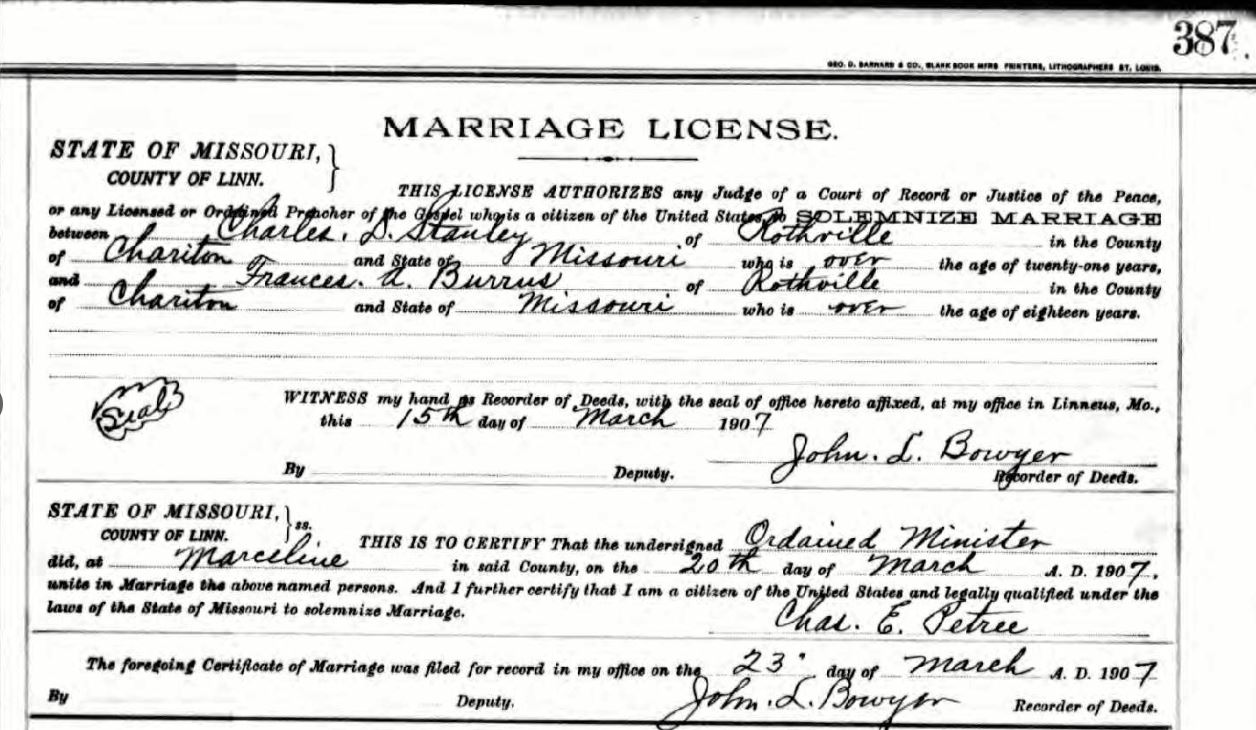 387.
GEO. D. BARNARD & CO., BLANK BOOK MFRS PRINTERS, LITHOGRAPHERS ST. LOUIS.
MARRIAGE LICENSE.
STATE OF MISSOURI,
COUNTY OF LINN.
THIS LICENSE AUTHORIZES any Judge of a Court of Record or Justice of the Peace,
or any Licensed or Ordained Preacher of the Gospel who is a citizen of the United States, to SOLEMNIZE MARRIAGE
between Charles. D. Stanley of Rothville in the County
of Chariton and State of Missouri who is over the age of twenty-one years,
and Frances. A. Burrus of Rothville in the County
of Chariton and State of Missouri who is over the age of eighteen years.
Seal
WITNESS my hand as Recorder of Deeds, with the seal of office hereto affixed, at my office in Linneus, Mo.,
this 15th day of March 1907
John. L. Bowyer
By Deputy. Recorder of Deeds.
STATE OF MISSOURI,
COUNTY OF LINN. ss.
THIS IS TO CERTIFY That the undersigned Ordained Minister
did, at Marceline in said County, on the 20th day of March A. D. 1907.
unite in Marriage the above named persons. And I further certify that I am a citizen of the United States and legally qualified under the
laws of the State of Missouri to solemnize Marriage.
Chas. E. Petree
The foregoing Certificate of Marriage was filed for record in my office on the 23 day of March A. D. 1907
By Deputy. John. L. Bowyer Recorder of Deeds.